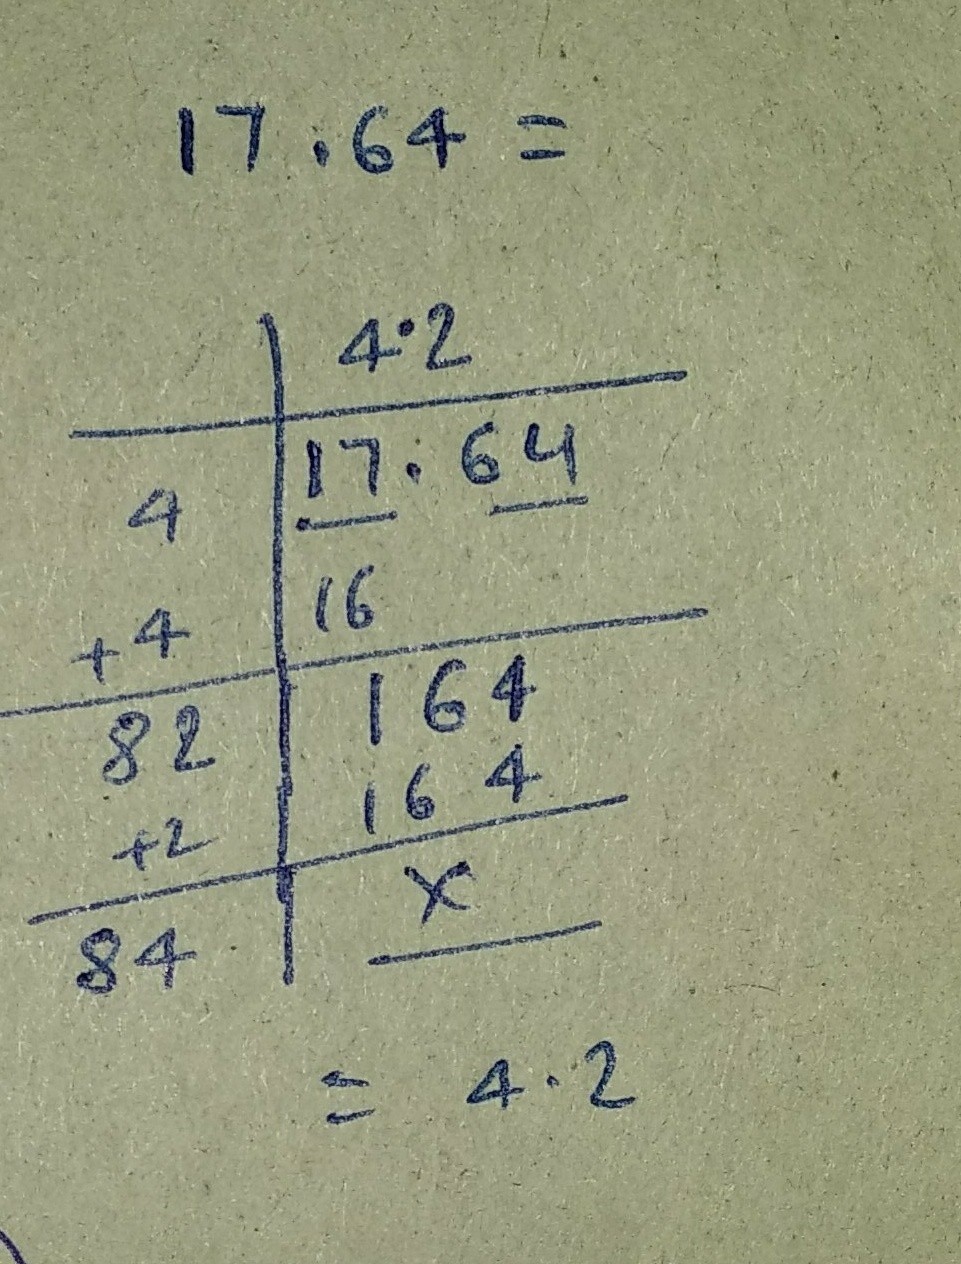 17.64 =
4.2
4 17.64
+4 16
82 164
+2 164
84 x
= 4.2